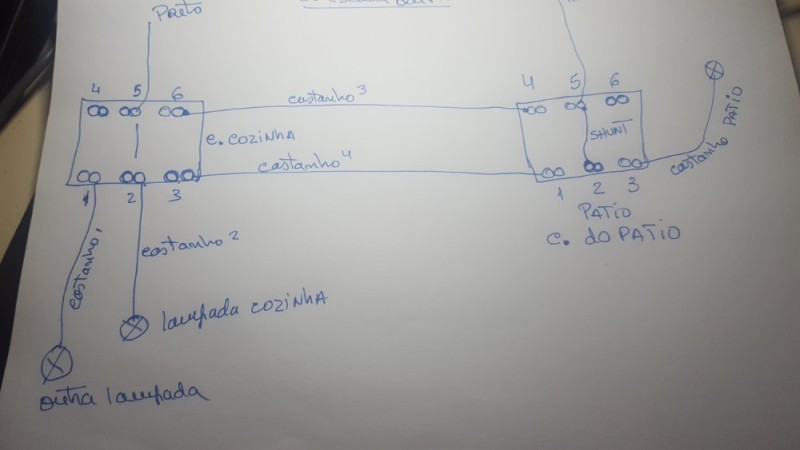 PRETO
4 5 6
castanho 3
4 5 6
C. COZINHA
SHUNT
castanho PATIO
castanho 4
1 2 3
1 2 3
PATIO
C. do PATIO
castanho 1
castanho 2
lampada COZINHA
outra lampada